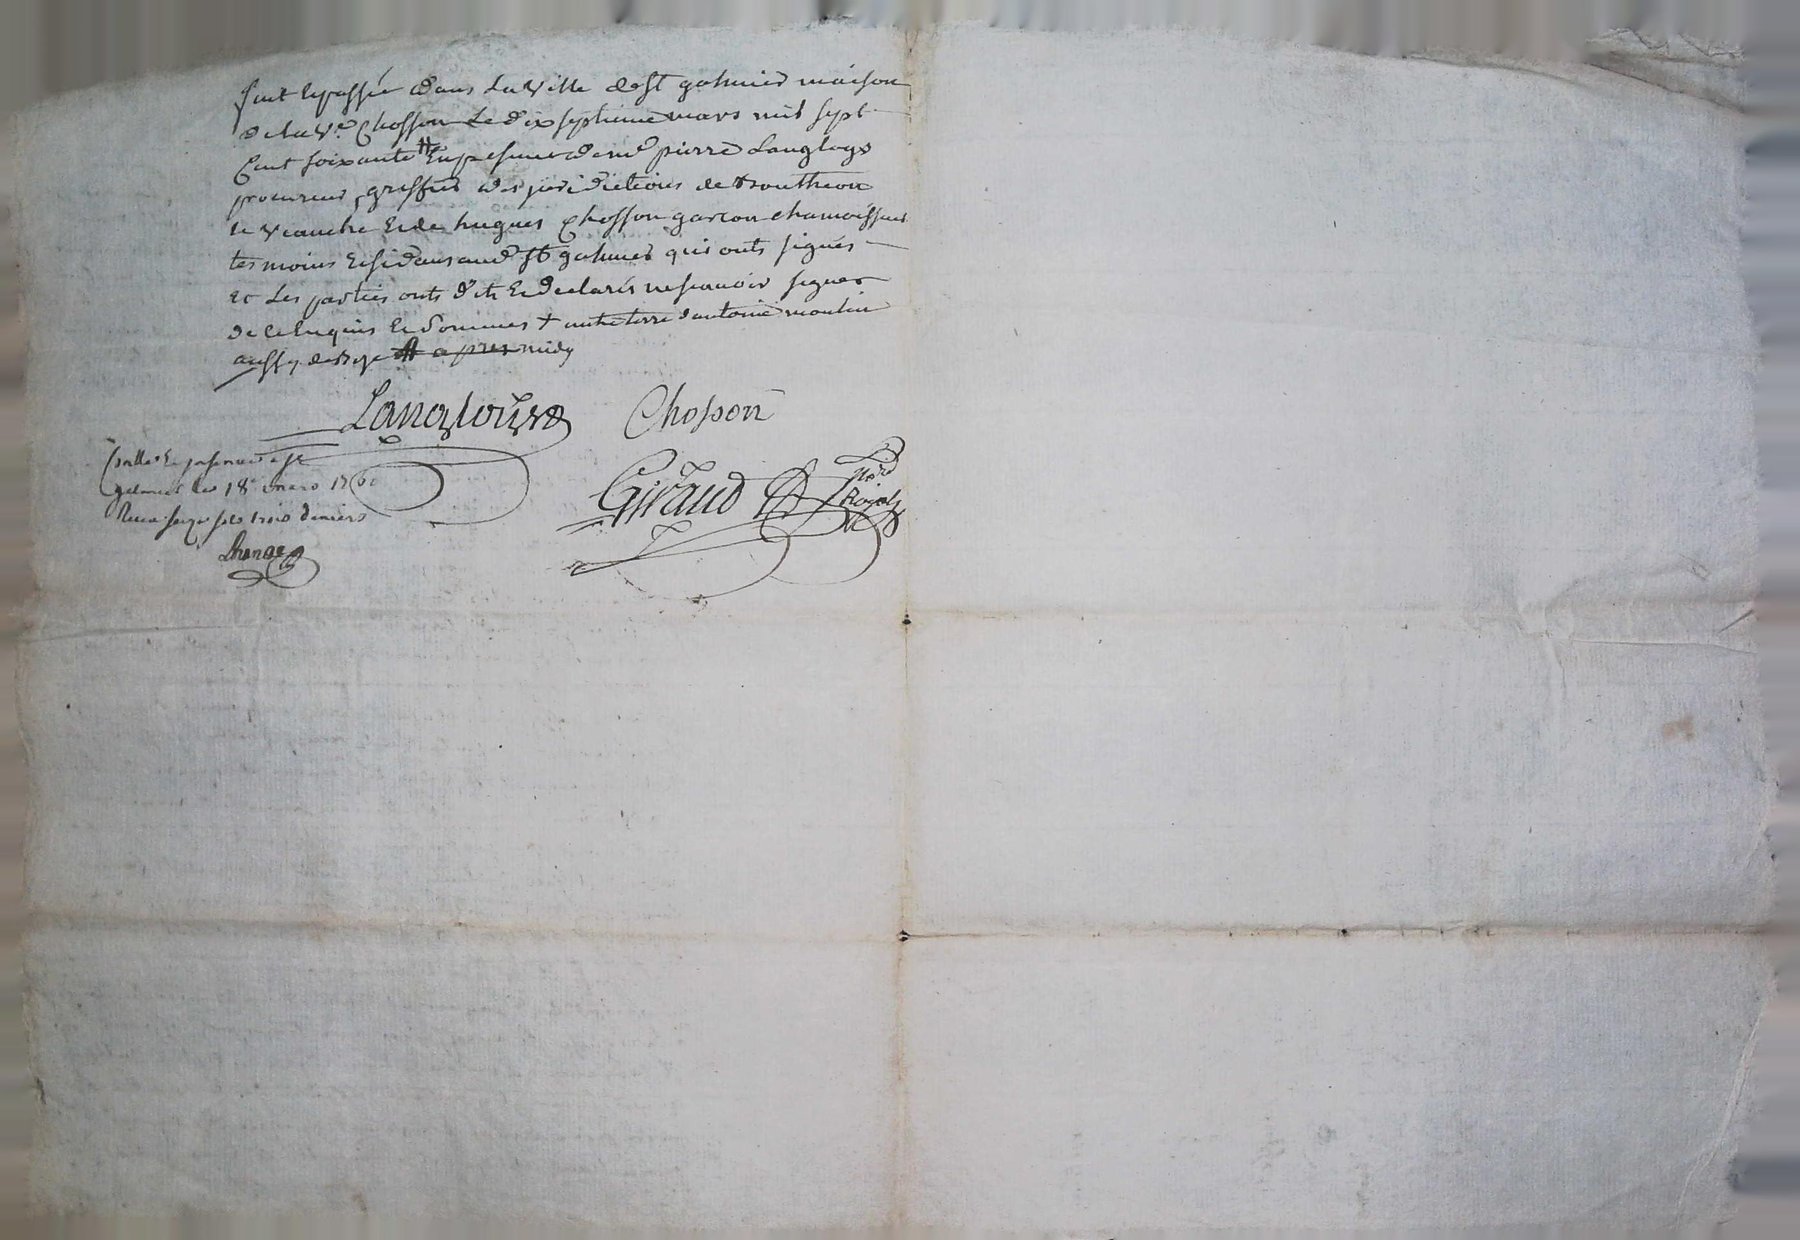 fait et passée dans la ville de st galmier maison
de la ve chosson le dix septieme mars mil sept
cent soixante # en presence de me pierre Langloys
procureur, greffier des juridictions de Boutheon
le veauche et de hugues chosson garçon chamoisseur
tesmoins residans aud st galmier qui onts signés
et les parties onts dit et declarés ne scavoir signer
de ce enquis et sommes + autre terre d'antoine moulin
aussy de bize # apres midy
Langloys
Chosson
Giraud
Nore
Royal
Controllé et insinué a st
galmier le 18e mars 1760
Receu seize sols trois deniers